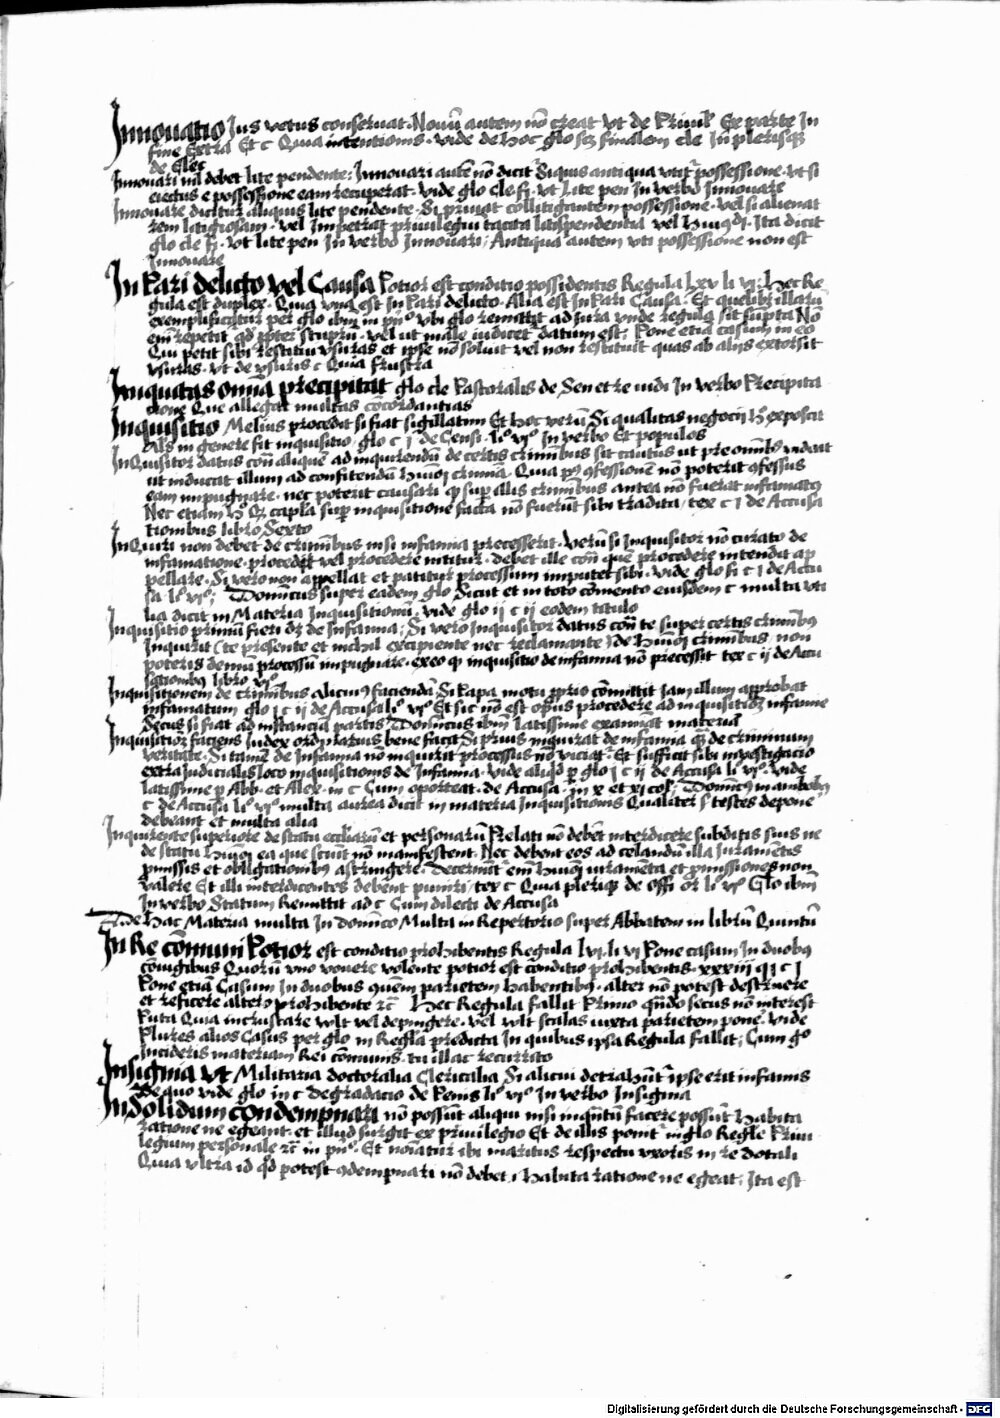 Innouatio Jus vetus conseruat. Nouū autem nō creat vt de Priuil' Ex parte In
fine Extra Et c Quia intentionis. vide de hoc glo sing finalem cle In plerisque
de Elec
Innouari nil debet lite pendente: Innouari autē nō dicit' Siquis antiqua vtit' possessione. vt si
eiectus e possessione eam recuperat. vide glo cle fi vt Lite pen In verbo Innouare
Innouare dicitur aliquis lite pendente. Si priuat collitigantem possessione. vel si alienat
rem litigiosam. vel Impetrat priuilegiū tacita litispendentia vel huiꝰdi. Ita dicit
glo cle fi. vt lite pen In verbo Innouari; Antiqua autem vti possessione non est
Innouare
In Pari delicto vel Causa Potior est conditio possidentis Regula lxv li vi: Hec Re
gula est duplex. Quia vna est In Pari delicto. Alia est In Pari Causa. Et quelibet illarū
exemplificatur per glo ibm in pn° vbi glo remittit ad Jura vnde regula sit sūpta No
em repetit qd ppter stupru. vel ut male iudicet datum est; Pone etiā casum in eo
Qui petit sibi restitui vsuras et ipse nō soluit vel non restituit quas ab alijs extorsit
vsuras. vt de vsuris c Quia frustra
Iniquitas omnia precipitat glo cle Pastoralis de Sen et re iudi In verbo Precipita
cione Que allegat multas cōcordantias
Inquisitio Melius procedit si fiat sigillatim Et hoc verū Si qualitas negocij hoc exposcit
Als in genere fit inquisitio, glo c j de Censi. li° vj° In verbo Et populos
Inquisitor datus cōtra aliquē ad inquirendū de certis criminibus sit cautus ut pre omnibꝰ videat
ut inducat illum ad confitendū huiꝰoi crimina. Quia post cōfessionē nō poterit cōfessus
eam impugnare. nec poterit causari qp sup illis criminibus antea nō fuerat infamatꝰ
Nec etiam qp capta sup inquisitione facta nō fuerūt sibi tradita, tex c j de Accusa
tionibus libro Sexto
Inquiri non debet de criminibus nisi infamia precesserit. Verū si Inquisitor nō curato de
infamatione. procedere vel procedere nititur. debet ille cōtra quē procedere intendit ap
pellare. Si vero non appellat et patitur processum imputet sibi. vide glo fi c j de Accu
sa li° vj°; Dominicus super eadem glo Sicut et in toto cōmento eiusdem c multa vti
lia dicit in Materia Inquisitionū. vide glo ij c ij eodem titulo
Inquisitio primū fieri dz de Infamia; Si vero Inquisitor datus cōtra te super certis criminibꝰ
Inquirit (te presente et nichil excipiente nec reclamante) de huiꝰoi criminibus. non
poteris demū processū impugnare. exeo qp inquisitio de infamia nō precessit tex c ij de Accu
sationibꝰ libro vj°
Inquisitionem de criminibus alicuiꝰ faciendā Si Papa motu ppris cōmittit Jam illum approbat
infamatum glo j c ij de Accusa li° vj° Et sic nō est opus procedere ad inquisitionē infamie
Secus si fiat ad instanciā partis Dominicus ibm latissime examinat materiā
Inquisitor faciens Iudex ordinarius bene facit Si prius inquirat de infamia qz de criminum
veritate. Si tamē de Infamia nō inquirit processus nō viciat'. Et sufficit sibi investigacio
extra Judicialis loco inquisitionis de Infamia. vide aliqd p glo j c ij de Accusa li° vj°. vide
latissime p Abb. et Alex. in c Cum oporteat. de Accusa. in x et xj col; Dominicꝰ in ambobꝰ
c de Accusa li° vj° multa aurea dicit in materia Inquisitionis Qualiter testes depone'
debeant et multa alia
Inquirente superiore de statu eccliarū et personarū Prelati nō debēt interdicere subditis suis ne
de statu huiꝰoi ea que sciunt nō manifestent. Nec debent eos ad celandū illa Juramētis
pmissis et obligationibꝰ astringere. Decernūt' em huiꝰoi iuramēta et pmissiones non
valere Et illi interdicentes debent puniri, tex c Quia plerique de offi or li° vj° Glo ibm
In verbo Statum Remittit ad c Cum dilecti de Accusa
De hac Materia multa In dominico Multa in Repertorio super Abbatem in librū Quintū
In Re cōmuni Potior est conditio prohibentis Regula lvi. li vi Pone casum In duobꝰ
cōiugibus Quorū vno vouere volente potior est cōditio prohibentis. xxxiij q j c j
Pone etiā Casum in duobus quēm parietem habentibꝰ. alter nō potest destruere
et reficere altero prohibente rc̄ Hec Regula fallit Primo quādo secus nō interest
Puta Quia incrustare vult vel depingere. vel vult scalas iuxta parietem pone'. vide
Plures alios Casus per glo in Regla predicta In quibus ipsa Regula fallit; Cum g°
Incideris materiam Rei cōmunis. tu illac recurrito
Insignia vt Militaria doctoralia Clericalia Si alicui detrahūt' ipse erit infamis
De quo vide glo in c Degradacio de Penis li° vj° In verbo Insignia
Insolidum condempnari nō possūt aliqui nisi inqntū facere possūt habita
ratione ne egeant. et illud surgit ex priuilegio Et de illis ponit' in glo Regle Priui
legium personale rc̄ in pn°. Et notatur ibi maritus respectu vxoris in re dotali
Quia vltra id qd potest cōdempnari nō debet, habita ratione ne egeat; Ita est
Digitalisierung gefördert durch die Deutsche Forschungsgemeinschaft - DFG